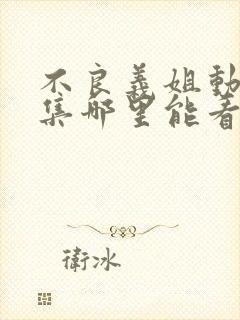 不良義姐動
集哪里能看
衛冰